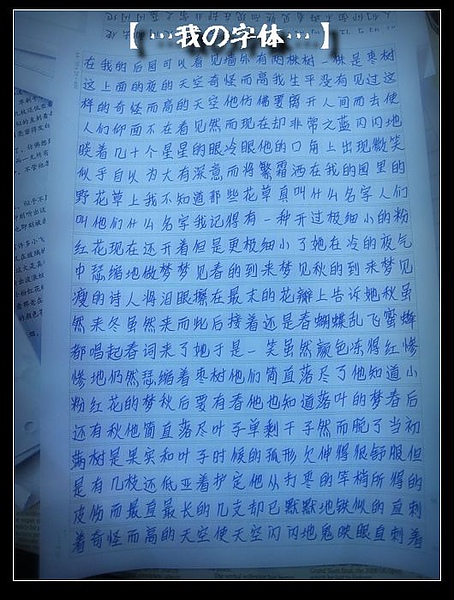 【…我の字体…】
在我的后园可以看见墙外有两株树一株是枣树
这上面的夜的天空奇怪而高我生平没有见过这
样的奇怪而高的天空他仿佛要离开人间而去使
人们仰面不在看见然而现在却非常之蓝闪闪地
睒着几十个星星的眼冷眼他的口角上出现微笑
似乎自以为大有深意而将繁霜洒在我的园里的
野花草上我不知道那些花草真叫什么名字人们
叫他们什么名字我记得有一种开过极细小的粉
红花现在还开着但是更极细小了她在冷的夜气
中瑟缩地做梦梦见春的到来梦见秋的到来梦见
瘦的诗人将泪眼擦在最末的花瓣上告诉她秋虽
然来冬虽然来而此后接着还是春蝴蝶乱飞蜜蜂
都唱起春词来了她于是一笑虽然颜色冻得红惨
惨地仍然瑟缩着枣树他们简直落尽了他知道小
粉红花的梦秋后要有春他也知道落叶的梦春后
还有秋他简直落尽叶子单剩干子然而脱了当初
满树是果实和叶子时候的弧形欠伸得很舒服但
是有几枝还低亚着护定他从打枣的竿梢所得的
皮伤而最直最长的几支却已默默地铁似的直刺
着奇怪而高的天空使天空闪闪地鬼睒眼直刺着